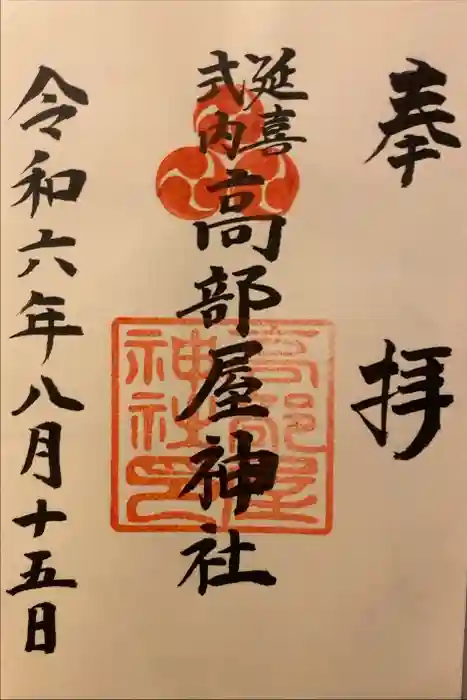 奉拝
延喜
式内
高部屋神社
高部屋
神社印
令和六年八月十五日